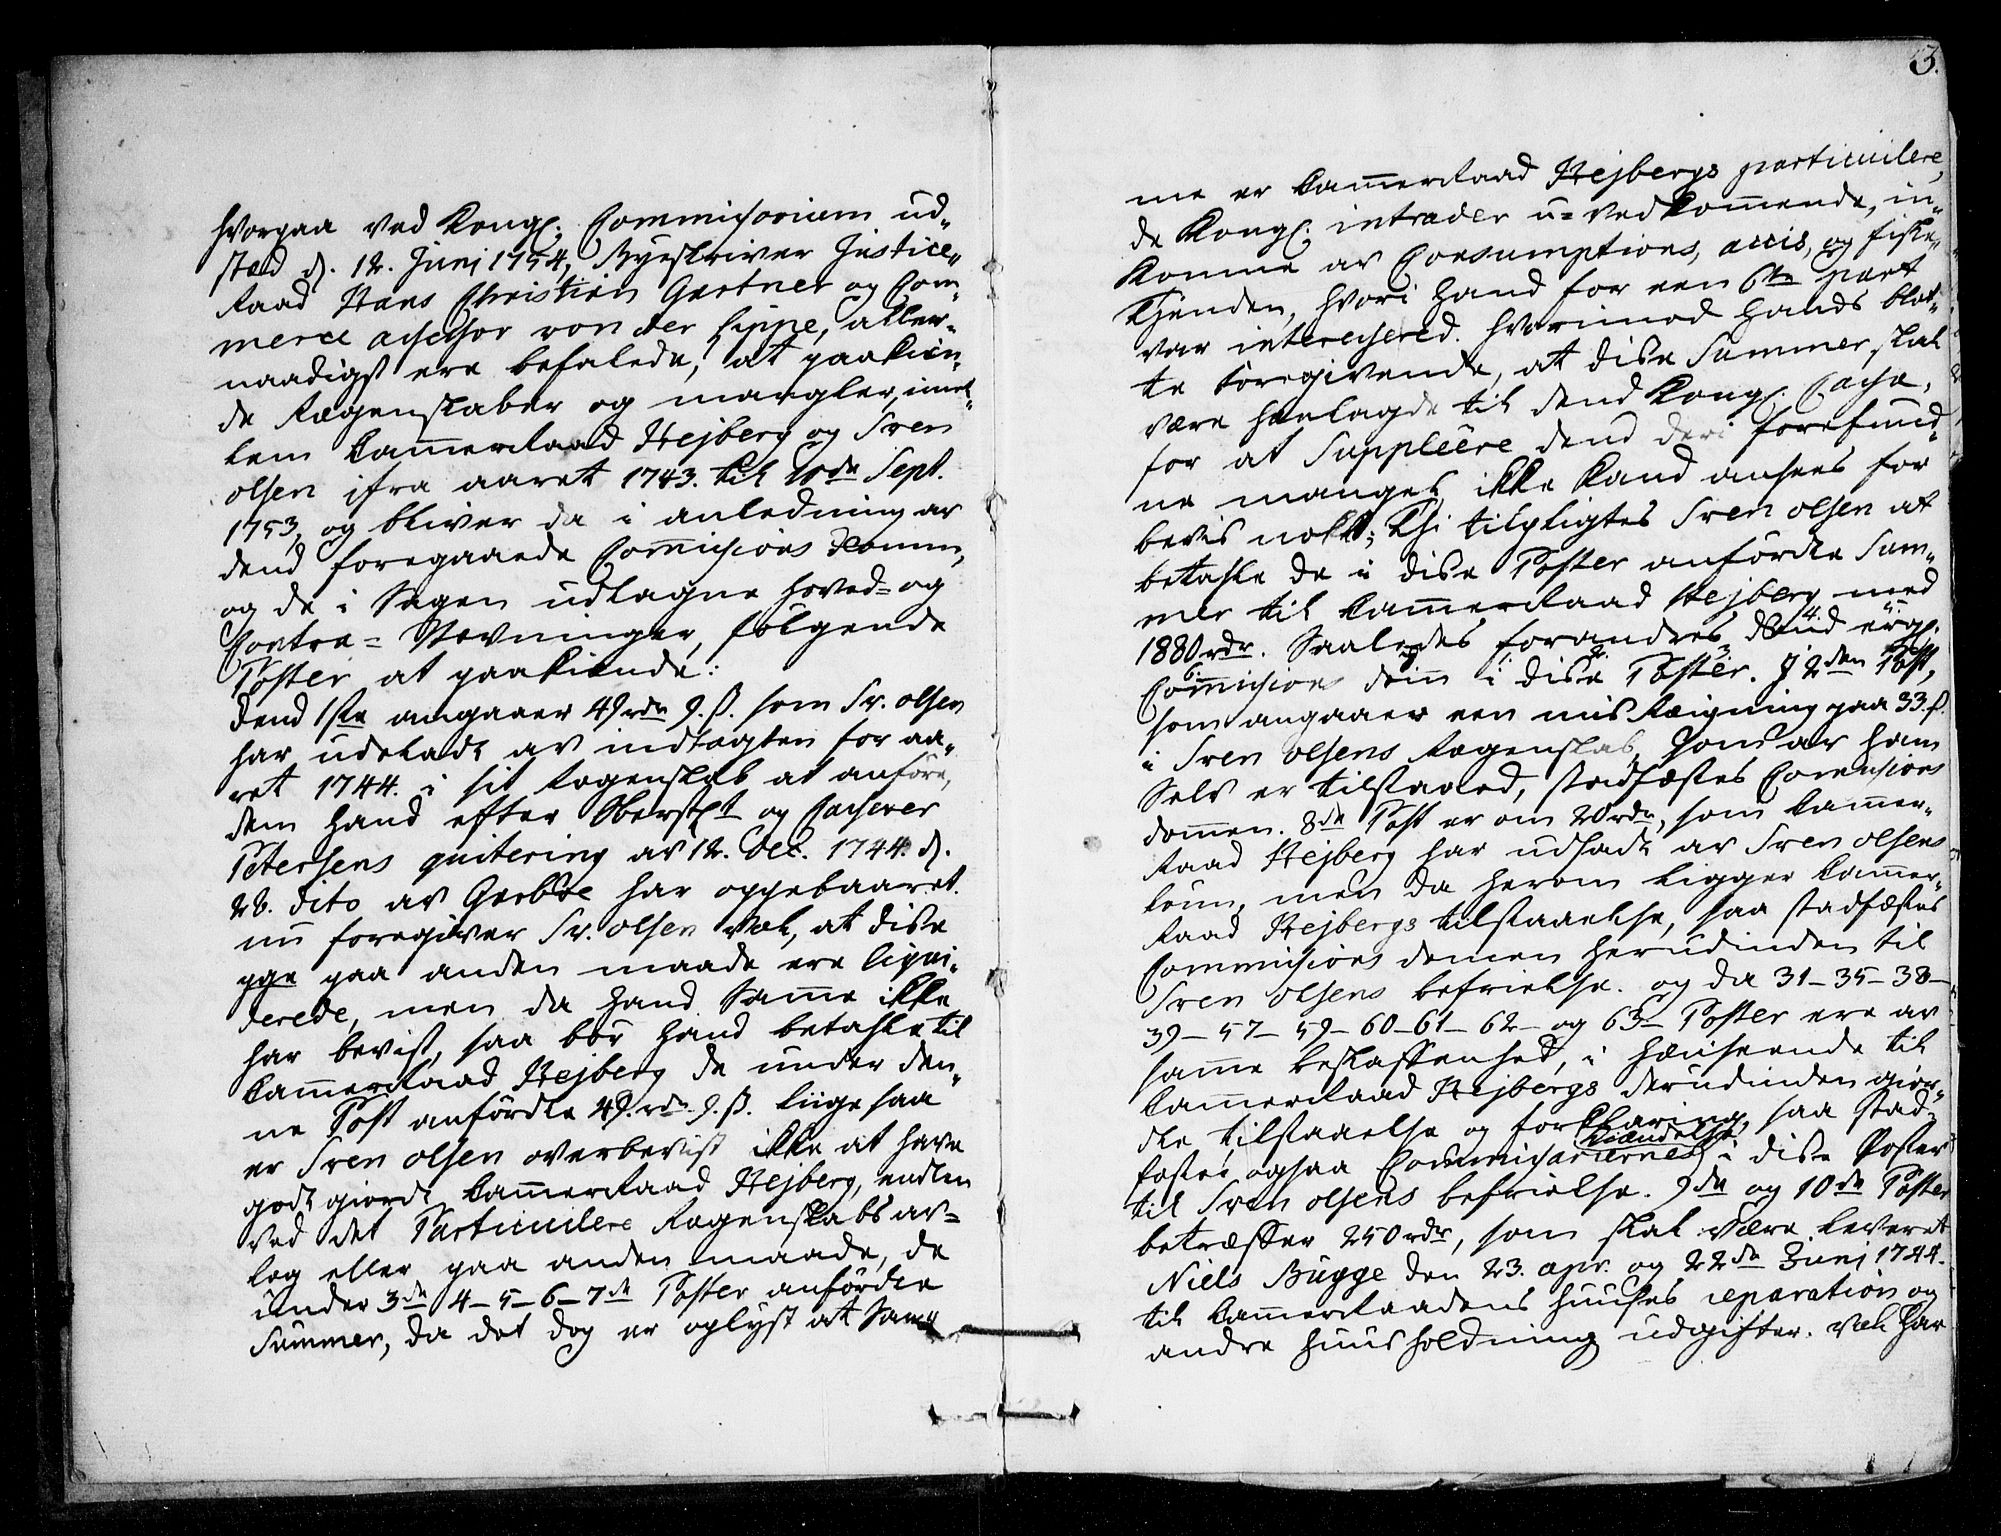 hvorpaa ved Kongl: Commissorium ud-
stæd d. 12. Junj 1754, Byeskriver Justice-
Raad Hans Christian Gartner og Com-
merce assessor von der Lippe, aller-
naadigst ere befalede, at paakien-
de Regenskaber og mangler, imel-
lem Cammerraad Hejberg og Sven
olsen ifra aaret 1743. til 10de Sept.
1753, og bliver da i anledning av
dend foregaaende Commissions domm,
og de i Sagen udtagne hoved- og
Contra- Stevninger, følgende
Poster at paakiende:
dend 1ste angaaer 49 rdr 9. ß. som Sv. olsen
har udeladt av indtægten for aa-
ret 1744. i sit Regenskab at anføre,
dem hand efter Oberstl:t og Casserer
Petersens qvitering av 12. Dec. 1744. d.
28. dito av Garboe har oppebaaret.
nu foregiver Sv. olsen vel, at disse
pge paa anden maade ere liqvi-
derede, men da hand Samme ikke
har bevist, saa bør hand betahle til
Cammerraad Hejberg de under den-
ne Post anførdte 49. rdr. 9. ß. liige saa
er Sven olsen overbevist ikke at have
godt giordt Cammerraad Hejberg, endten
ved det Particulere Regenskabs av-
lag eller paa anden maade, de
under 3de 4-5-6-7de Poster anførdte
Summer, da det dog er oplyst at Sam-
3.
me er Cammerraad Hejbergs particulere,
de Kongl. intrader u-vedkommende, in-
komme av Consumptions, accis, og fiske-
tienden, hvori hand for een 6te part
var interessered. hvorimod hands blot-
te foregivende, at disse Summer skal
være henlagde til dend Kongl. Cassa,
for at Suppleêre dend deri forefund-
ne mangel, ikke kand ansees for
bevis nokk; Thi tilpligtes Sven olsen at
betahle de i disse Poster anførdte Sum-
mer til Cammerraad Hejberg med
1880 rdr. Saaledes forandres dend
Commissions dom i disse Poster. J 2den Post,
som angaaer een mis Reigning paa 33. ß.
i Sven olsens Regenskab, som av ham
Selv er tilstaaed, stadfæstes Commissions
dommen. 8de Post er om 20 rdr, som Cammer-
Raad Hejberg har udsadt av Sven olsens
løn, men da herom ligger Cammer-
Raad Hejbergs tilstaaelse, saa stadfæstes
Commissions domen herudinden til
Sven olsens befrielse. og da 31-35-38-
39-57-59-60-61-62- og 63- Poster ere av
samme beskaffenhed, i henseende til
Cammerraad Hejbergs derudinden gior-
dte tilstaaelse og forklaring, saa stad-
kiændelse
festes ogsaa Commissariernes i disse Poster
til Sven olsens befrielse. 9de og 10de Poster
betræffer 250 rdr, som skal være leveret
Niels Bugge den 23. apr. og 22de Junj 1744.
til Cammerraadens huuses reparation og
andre huusholdning udgifter. vel har